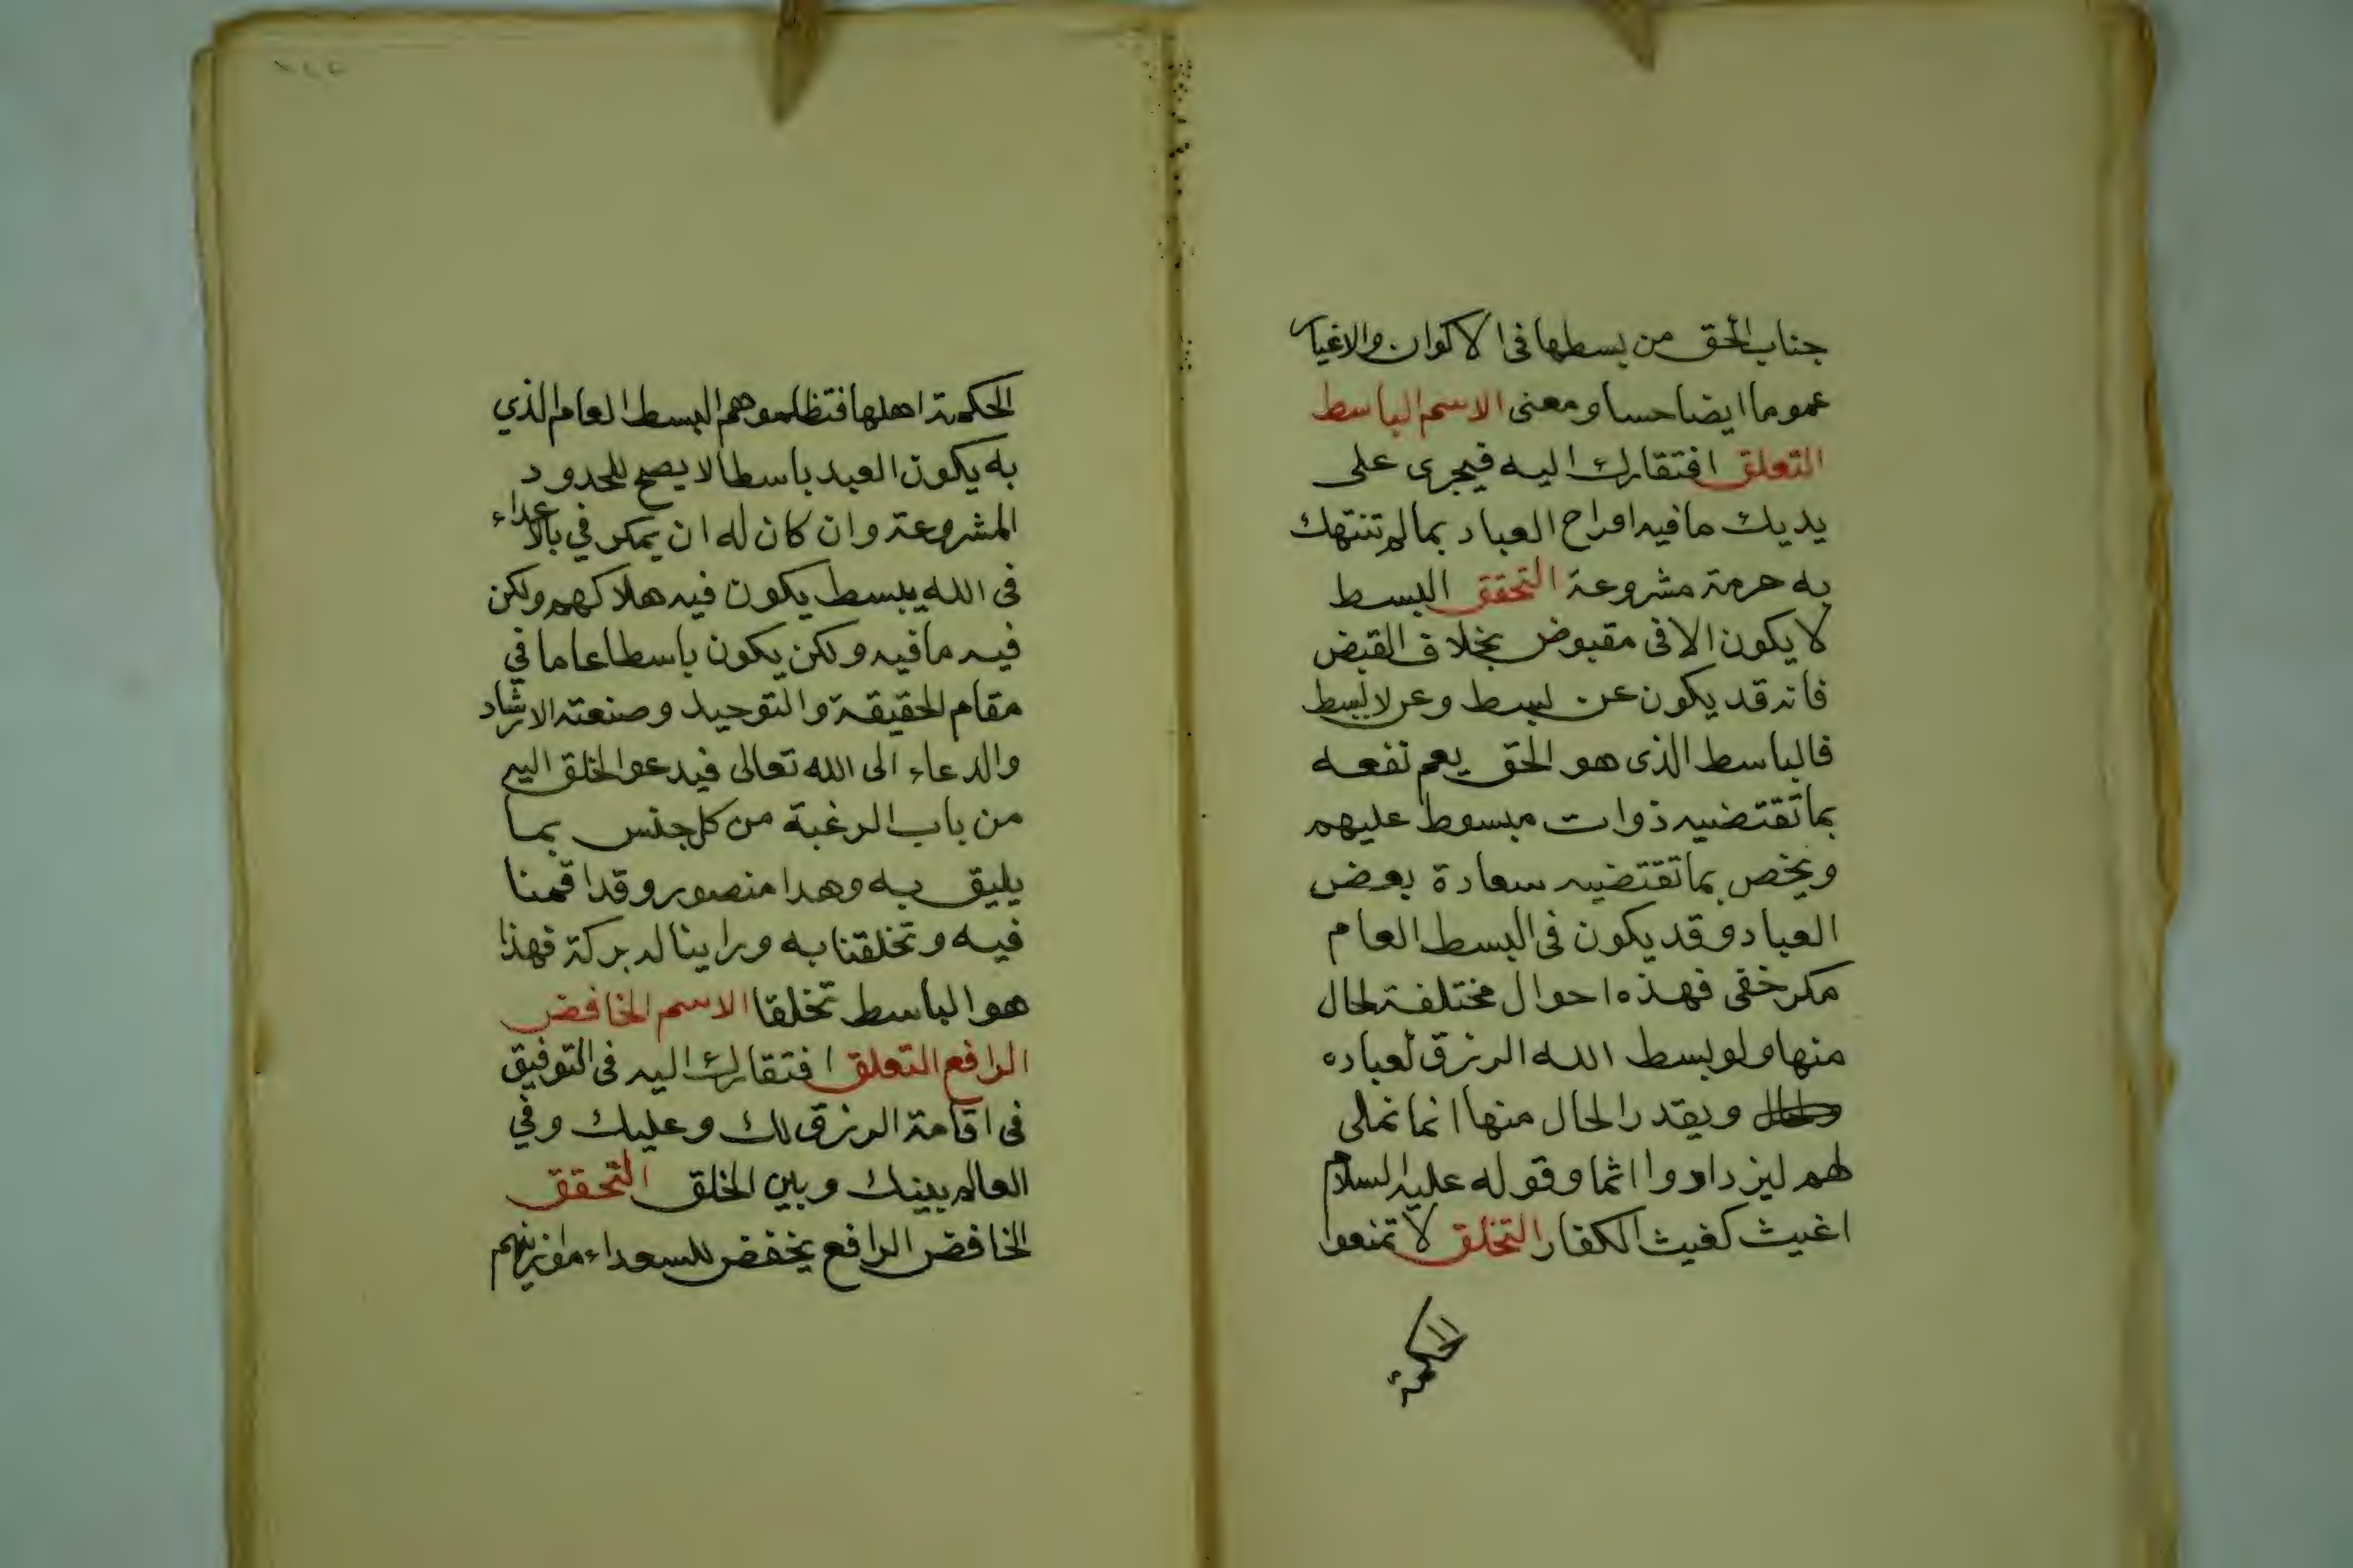 جناب الحق من بسطها فى الاكوان والاغيار
عموما ايضا حسا ومعنى الاسم الباسط
التعلق افتقارك اليه فيجرى على
يديك ما فيه افراح العباد بما لم تنتهك
به حرمة مشروعة التحقق البسط
لا يكون الا فى مقبوض بخلاف القبض
فانه قد يكون عن بسط وعن لا بسط
فالباسط الذى هو الحق يعم نفعه
بما تقتضيه ذوات مبسوط عليهم
ويخص بما تقتضيه سعادة بعض
العباد وقد يكون فى البسط العام
مكر خفى فهذه احوال مختلفة لحال
منها ولو بسط الله الرزق لعباده
ويقدر الحال منها انما نملى
لهم ليزدادوا اثما وقوله عليه السلام
اغيث كغيث الكفار التخلق لا تمنعوا
الحكمة
الحكمة اهلها فتظلموهم البسط العام الذي
به يكون العبد باسطا لا يصح للحدود
المشروعة وان كان له ان يمكر في بالاعداء
فى الله ببسط يكون فيه هلاكهم ولكن
فيه ما فيه ولكن يكون باسطا عاما في
مقام الحقيقة والتوحيد وصنعته الارشاد
والدعاء الى الله تعالى فيدعوا الخلق اليه
من باب الرغبة من كل جنس بما
يليق به وهدا منصور وقد اقمنا
فيه وتخلقنا به وراينا له بركة فهذا
هو الباسط تخلقا الاسم الخافض
الرافع التعلق افتقارك اليه فى التوفيق
فى اقامة الرزق لك وعليك وفي
العالم بينك وبين الخلق التحقق
الخافض الرافع يخفض للسعداء موازينهم